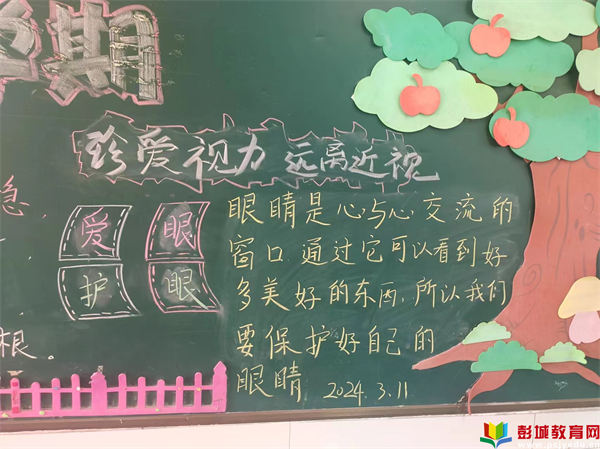 期
珍爱视力 远离近视
急，
爱 眼
护 眼
根。
眼睛是心与心交流的
窗口通过它可以看到好
多美好的东西，所以我们
要保护好自己的
眼睛 2024.3.11
彭城教育网